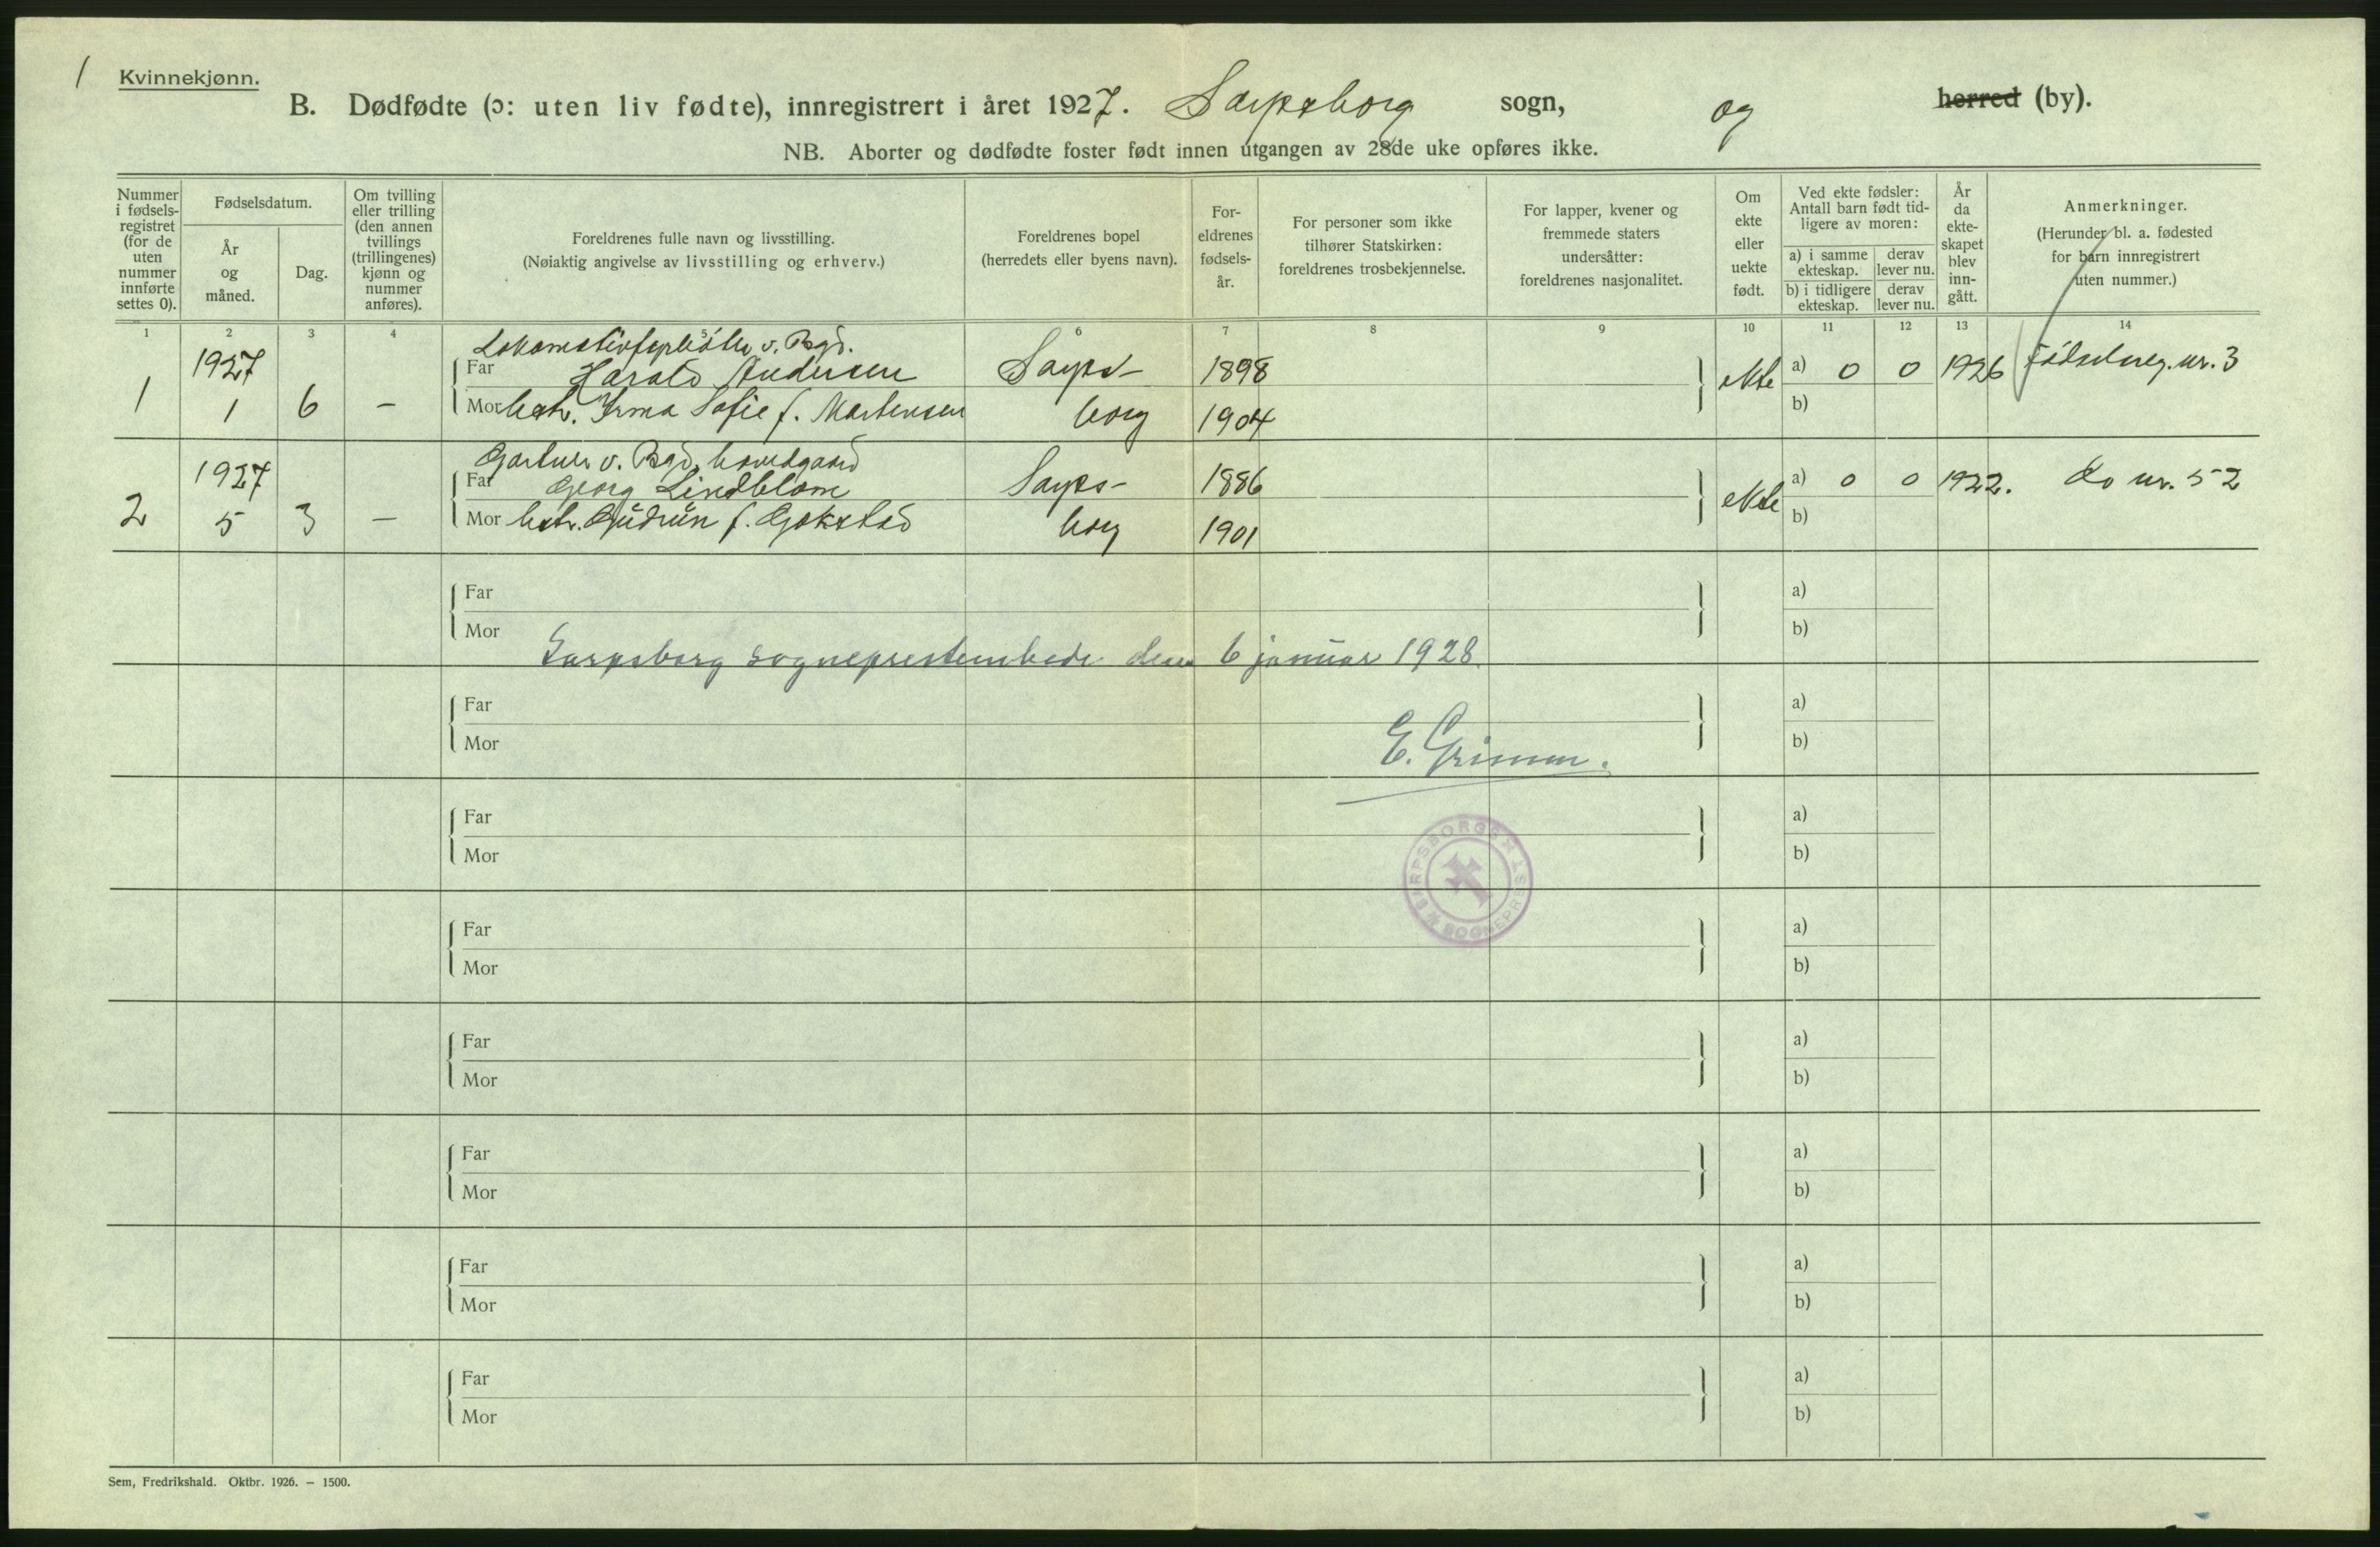 1
Kvinnekjønn.
B. Dødfødte (ɔ: uten liv fødte), innregistrert i året 1927. Sarpsborg sogn, og herred (by).
NB. Aborter og dødfødte foster født innen utgangen av 28de uke opføres ikke.
Nummer i fødsels-registret (for de uten nummer innførte settes 0).
Fødselsdatum.
År og måned.
Dag.
Om tvilling eller trilling (den annen tvillings (trillingenes) kjønn og nummer anføres).
Foreldrenes fulle navn og livsstilling.
(Nøiaktig angivelse av livsstilling og erhverv.)
Foreldrenes bopel
(herredets eller byens navn).
For-eldrenes fødsels-år.
For personer som ikke tilhører Statskirken: foreldrenes trosbekjennelse.
For lapper, kvener og fremmede staters undersåtter: foreldrenes nasjonalitet.
Om ekte eller uekte født.
Ved ekte fødsler: Antall barn født tid-ligere av moren:
a) i samme ekteskap.
derav lever nu.
b) i tidligere ekteskap.
derav lever nu.
År da ekte-skapet blev inn-gått.
Anmerkninger.
(Herunder bl. a. fødested for barn innregistrert uten nummer.)
1 2 3 4 5 6 7 8 9 10 11 12 13 14
v. Bgd.
1927 Far Harald Andersen Sarps- 1898 ekte a) 0 0 1926 Fødselsreg. nr. 3
1 1 6 – Mor hstr. Irma Sofie f. Martensen borg 1904 b)
Gartner v. Bgd. hovedgaard
1927 Far Georg Lindblom Sarps- 1886 ekte a) 0 0 1922. do nr. 52
2 5 3 – Mor hstr. Gudrun f. Gokstad borg 1901 b)
Far a)
Mor b)
Sarpsborg sogneprestembede den 6 januar 1928.
Far a)
Mor b)
E. Grimm.
Far a)
Mor b)
SARPSBORGS SOGNEPREST
Far a)
Mor b)
Far a)
Mor b)
Far a)
Mor b)
Far a)
Mor b)
Far a)
Mor b)
Sem, Fredrikshald. Oktbr. 1926. – 1500.